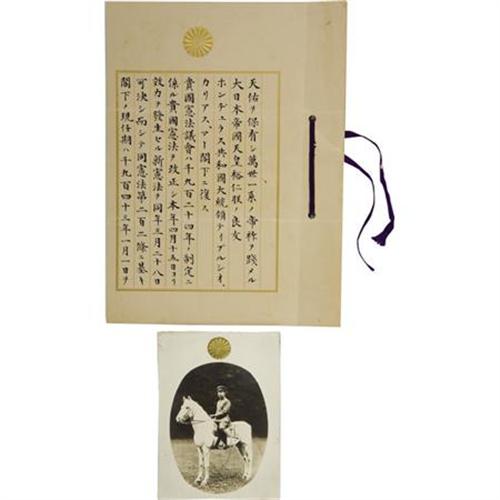 天佑ヲ保有シ萬世一系ノ帝祚ヲ踐メル
大日本帝國天皇裕仁朕ノ良友
ホンデュラス共和國大統領ティブルシオ、
カリアス、アー閣下ニ復ス
貴國憲法議會ハ千九百二十四年ノ制定ニ
係ル貴國憲法ヲ改正シ本年四月十五日ヨリ
效力ヲ發生セル新憲法ヲ同年三月二十八日
可決シ而シテ同憲法第二百二條ニ基キ
閣下ノ現任期ハ千九百四十三年一月一日ヲ